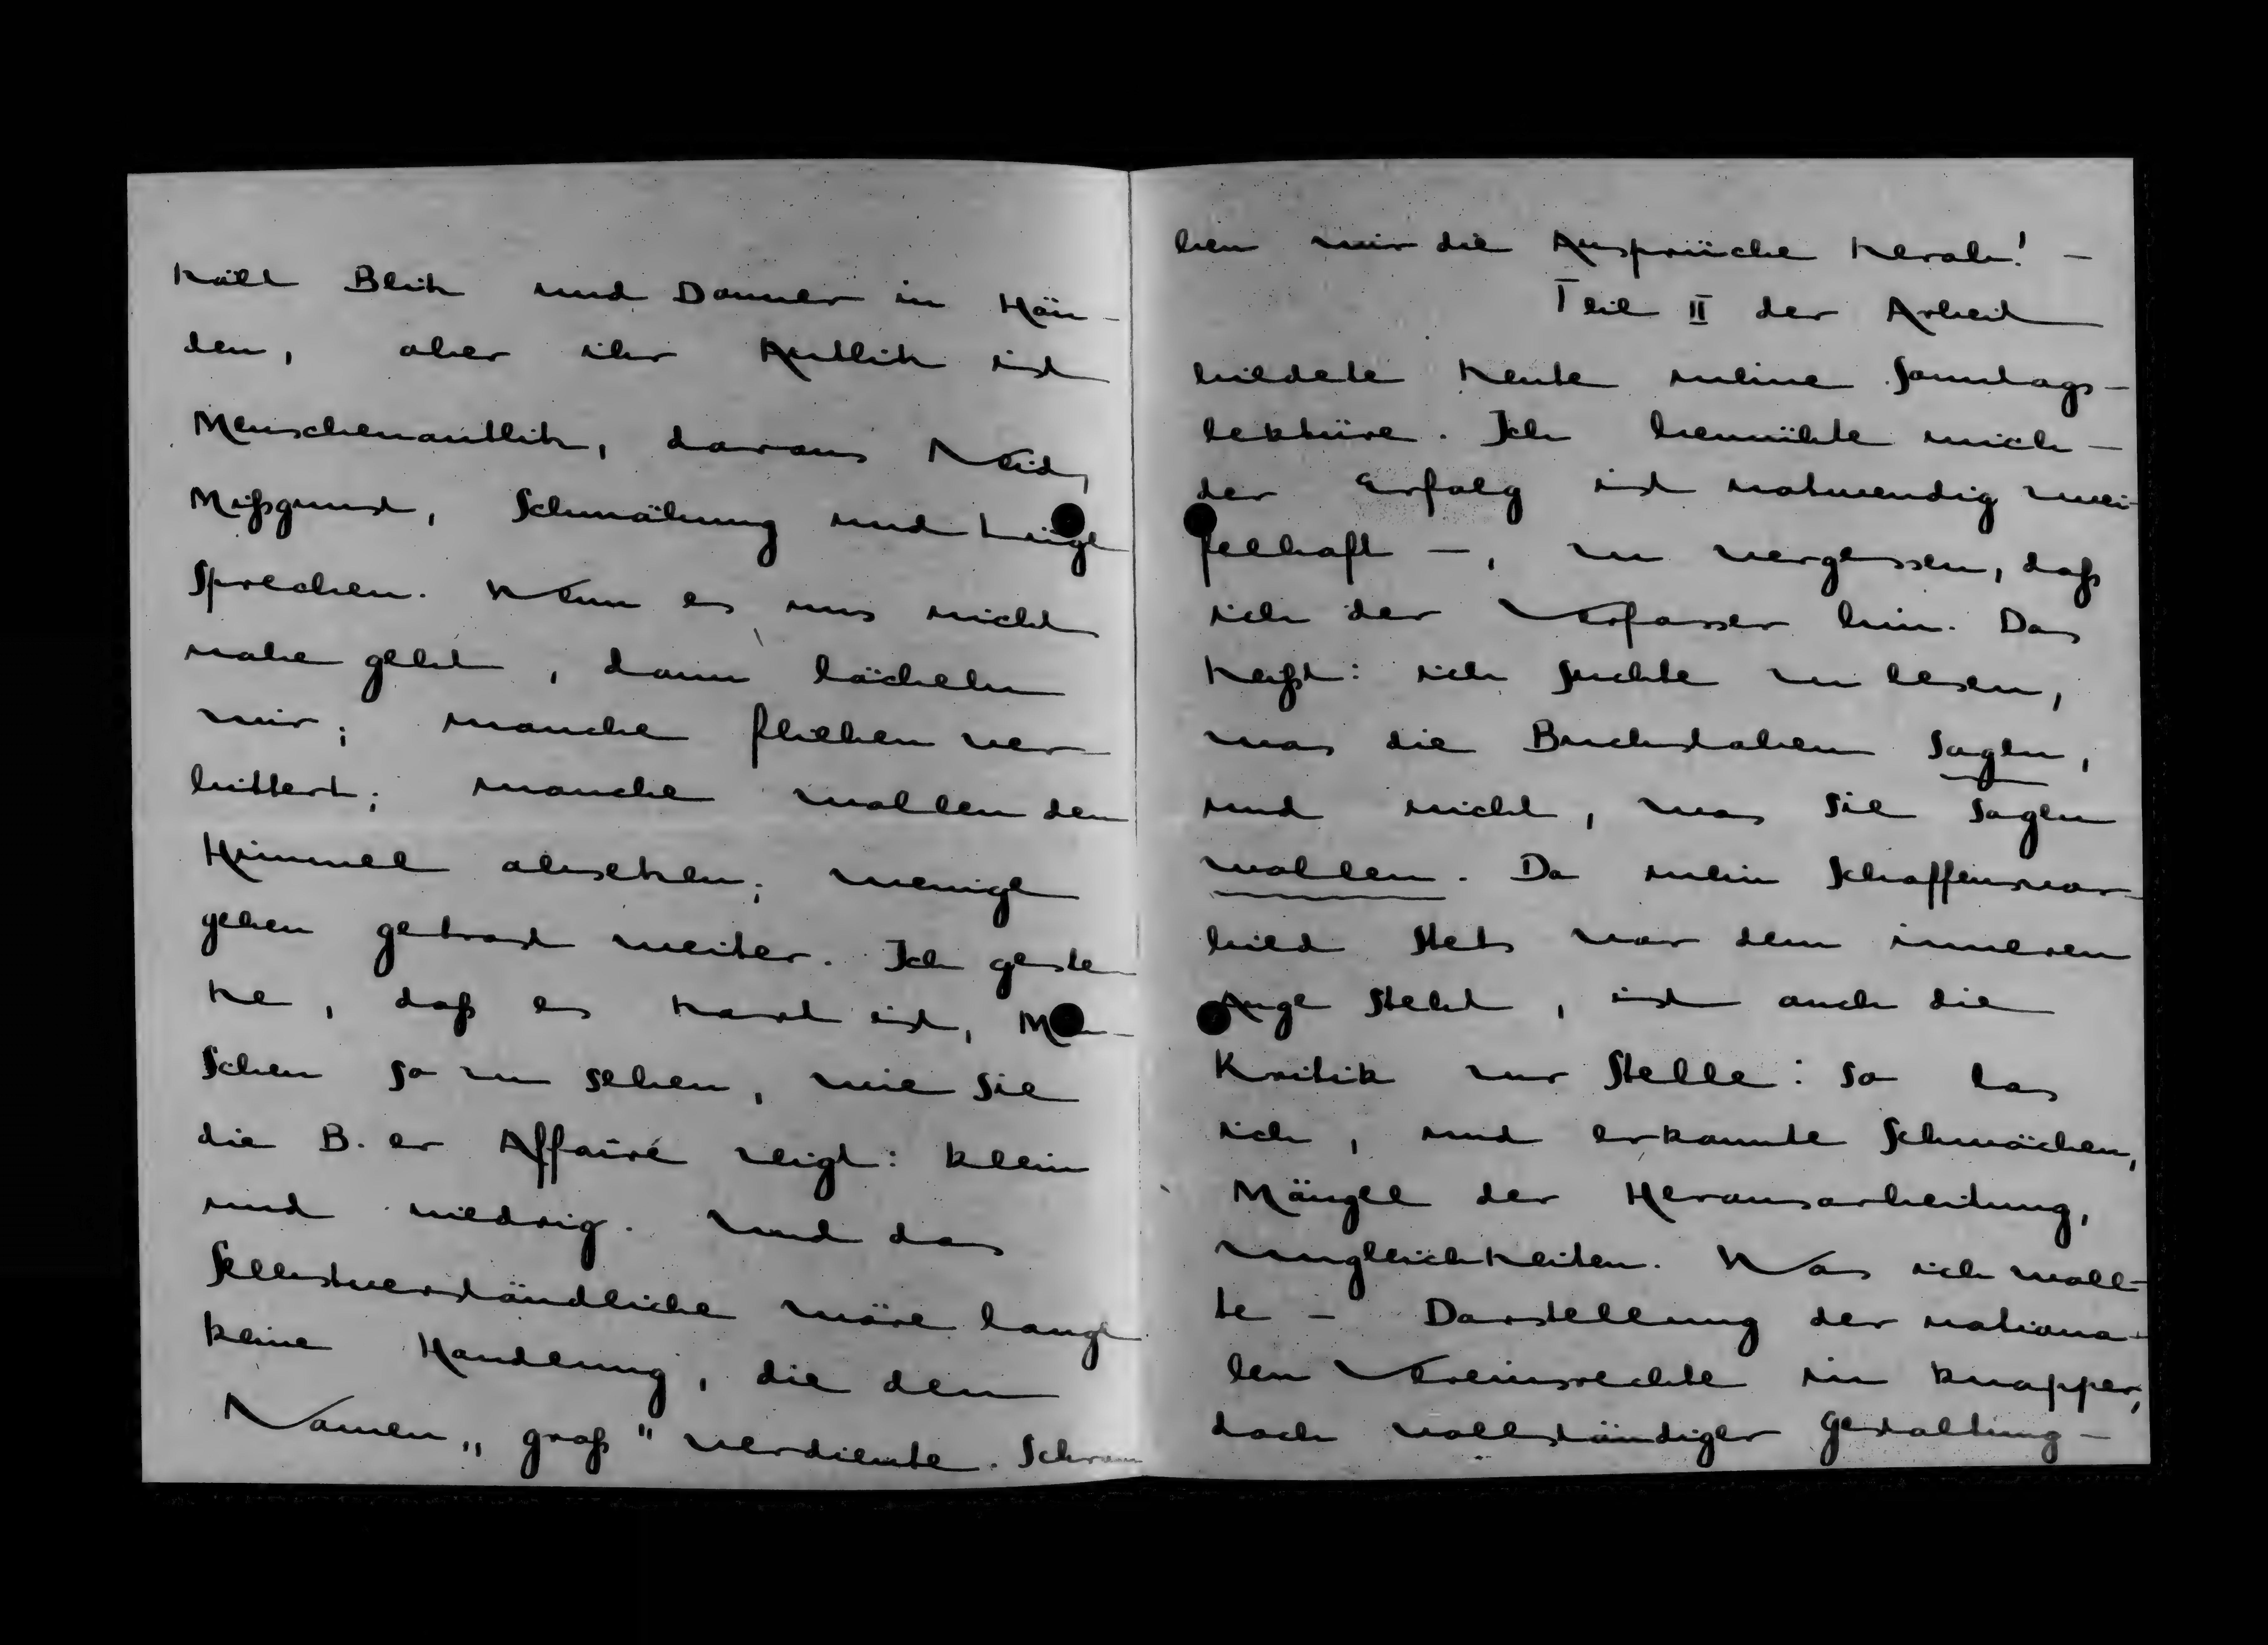 hält Blitz und Donner in Hän-
den, aber ihr Antlitz ist
Menschenantlitz, daraus Neid,
Mißgunst, Schmähung und Lüge
sprechen. Wenn es uns nicht
nahe geht, dann lächeln
wir; manche fliehen ver-
bittert; manche wollen den
Himmel absetzen; wenige
gehen getrost weiter. Ich geste-
he, daß es hart ist, Men-
schen so zu sehen, wie sie
die B.er Affaire zeigt: klein
und niedrig. Und das
Selbstverständliche wäre lange
keine Handlung, die den
Namen „groß" verdiente. Schrau-
ben wir die Ansprüche herab! –
Teil II der Arbeit
bildete heute meine Sonntags-
lektüre. Ich bemühte mich –
der Erfolg ist notwendig zwei-
felhaft –, zu vergessen, daß
ich der Verfasser bin. Das
heißt: ich suchte zu lesen,
was die Buchstaben sagen,
und nicht, was sie sagen
wollen. Da mein Schaffensvor-
bild stets vor dem inneren
Auge steht, ist auch die
Kritik zur Stelle: so las
ich, und erkannte Schwächen,
Mängel der Herausarbeitung,
Ungleichheiten. Was ich woll-
te – Darstellung der nationa-
len Vereinsrechte in knapper,
doch vollständiger Gestaltung –